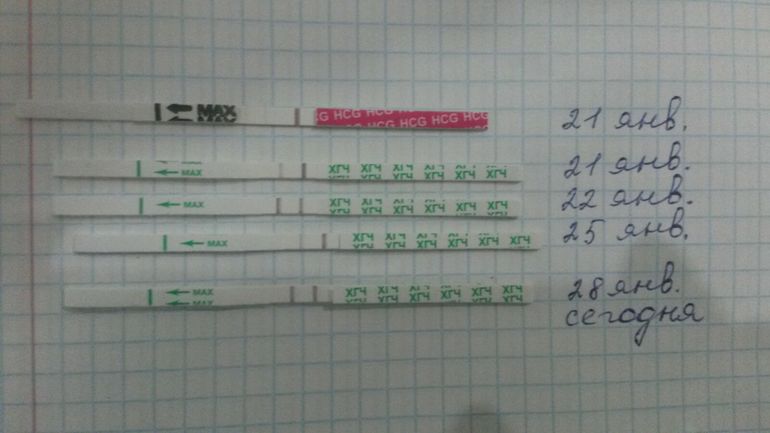 MAX HCG HCG HCG HCG HCG HCG
HCG HCG HCG HCG
21 янв.
MAX ХГЧ ХГЧ ХГЧ ХГЧ ХГЧ ХГЧ
21 янв.
MAX ХГЧ ХГЧ ХГЧ ХГЧ ХГЧ ХГЧ
22 янв.
MAX ХГЧ ХГЧ ХГЧ ХГЧ ХГЧ ХГЧ
25 янв.
MAX ХГЧ ХГЧ ХГЧ ХГЧ ХГЧ ХГЧ
MAX
28 янв.
сегодня